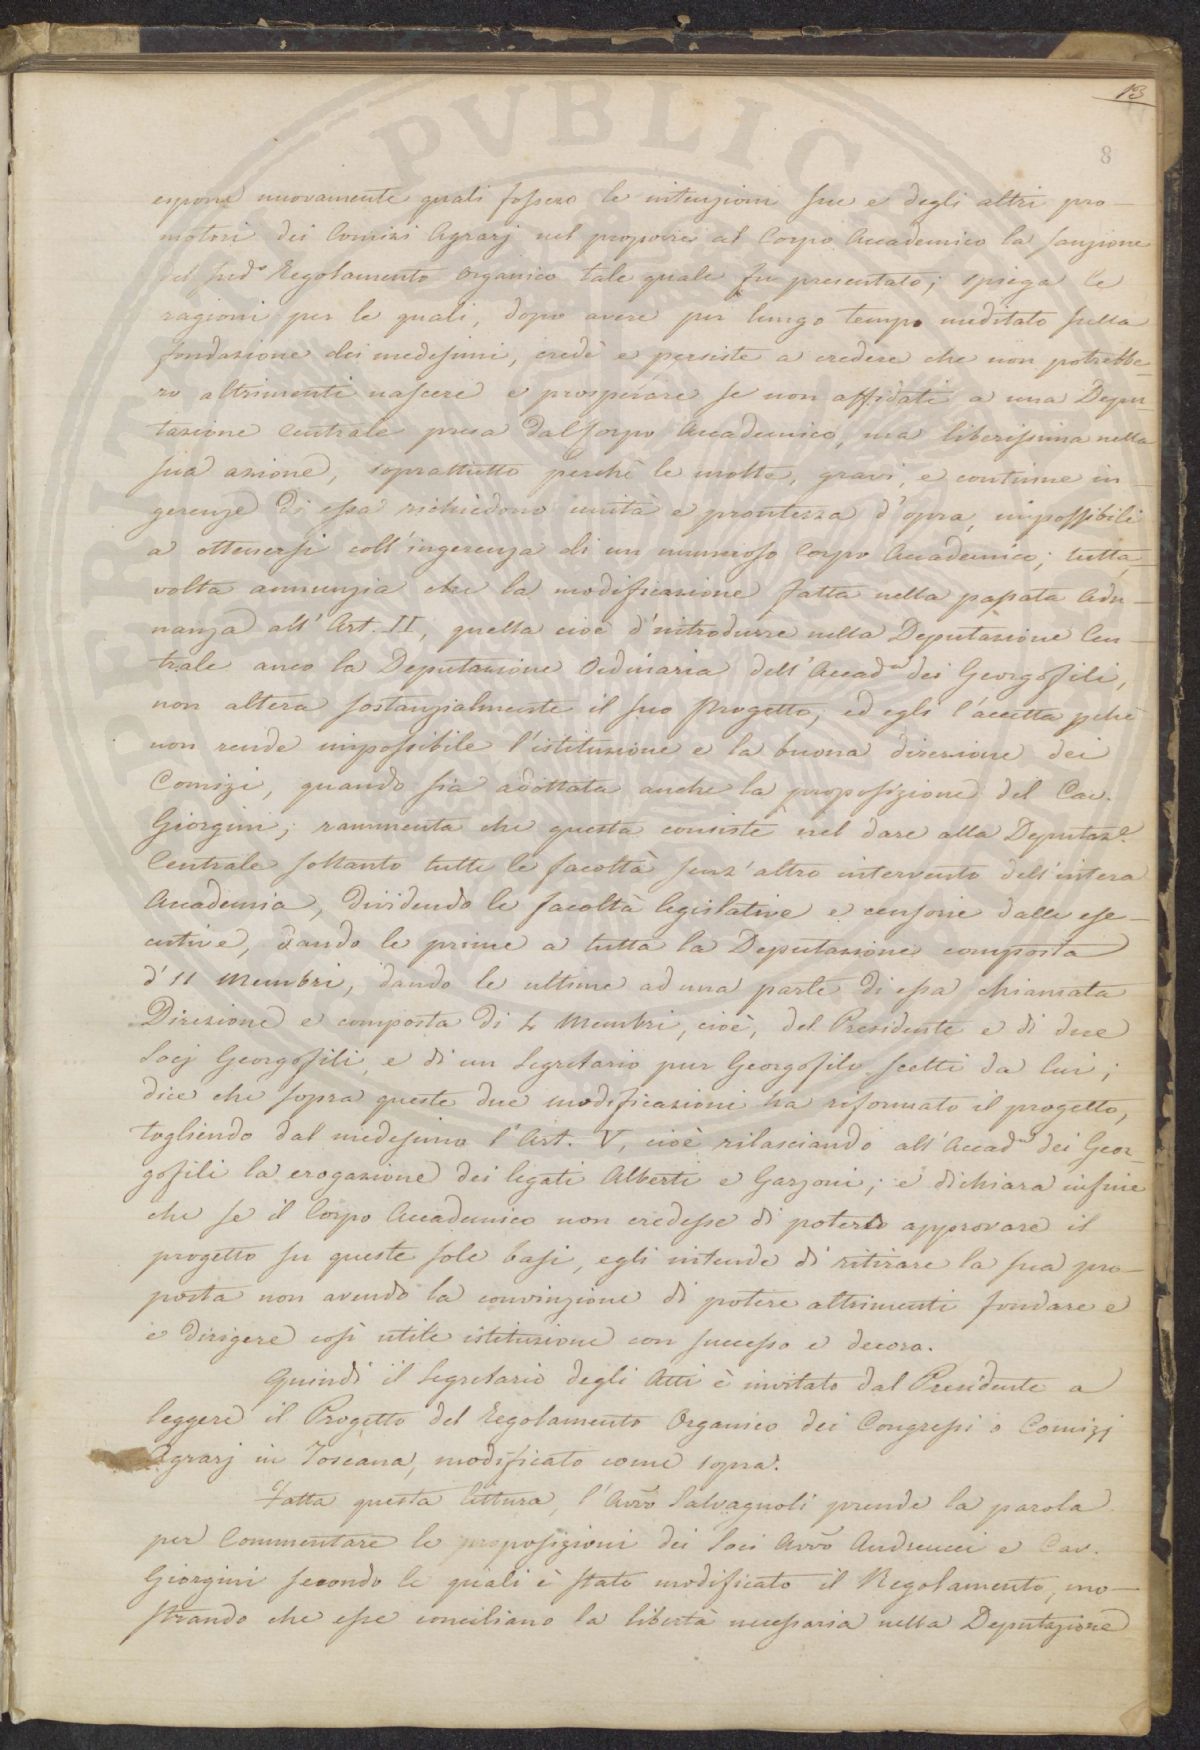 13
8
espone nuovamente quali fossero le intenzioni sue e degli altri pro-
motori dei Comizi Agrarj nel proporre al Corpo Accademico la sanzione
del sud.o Regolamento Organico tale quale fu presentato; spiega le
ragioni per le quali, dopo avere per lungo tempo meditato sulla
fondazione dei medesimi, credè e persiste a credere che non potrebbe-
ro altrimenti nascere e prosperare se non affidati a una Depu-
tazione Centrale presa dal Corpo Accademico, ma liberissima nella
sua azione, soprattutto perchè le molte, gravi, e continue in-
gerenze di essa richiedono unità e prontezza d'opra, impossibili
a ottenersi coll'ingerenza di un numeroso Corpo Accademico; tutta-
volta annunzia che la modificazione fatta nella passata Adu-
nanza all'Art. II, quella cioè d'introdurre nella Deputazione Cen-
trale anco la Deputazione Ordinaria dell'Accad.a dei Georgofili,
non altera sostanzialmente il suo Progetto, ed egli l'accetta pchè
non rende impossibile l'istituzione e la buona direzione dei
Comizi, quando sia adottata anche la proposizione del Cav.
Giorgini; rammenta che questa consiste nel dare alla Deputaz.e
Centrale soltanto tutte le facoltà senz'altro intervento dell'intera
Accademia, dividendo le facoltà legislative e censorie dalle ese-
cutive, dando le prime a tutta la Deputazione composta
d'11 Membri, dando le ultime ad una parte di essa chiamata
Direzione e composta di 4 Membri, cioè, del Presidente e di due
Socj Georgofili, e di un Segretario pur Georgofilo scelti da lui;
dice che sopra queste due modificazioni ha riformato il progetto,
togliendo dal medesimo l'Art. V, cioè rilasciando all'Accad.a dei Geor-
gofili la erogazione dei legati Alberti e Garzoni; e dichiara infine
che se il Corpo Accademico non credesse di poterlo approvare il
progetto su queste sole basi, egli intende di ritirare la sua pro-
posta non avendo la convinzione di potere altrimenti fondare e
e dirigere così utile istituzione con successo e decoro.
Quindi il Segretario degli Atti è invitato dal Presidente a
leggere il Progetto del Regolamento Organico dei Congressi o Comizj
Agrarj in Toscana, modificato come sopra.
Fatta questa lettura, l'Avvo Salvagnoli prende la parola
per Commentare le proposizioni dei Soci Avvo Andreucci e Cav.
Giorgini secondo le quali è stato modificato il Regolamento, mo-
strando che esse conciliano la libertà necessaria nella Deputazione